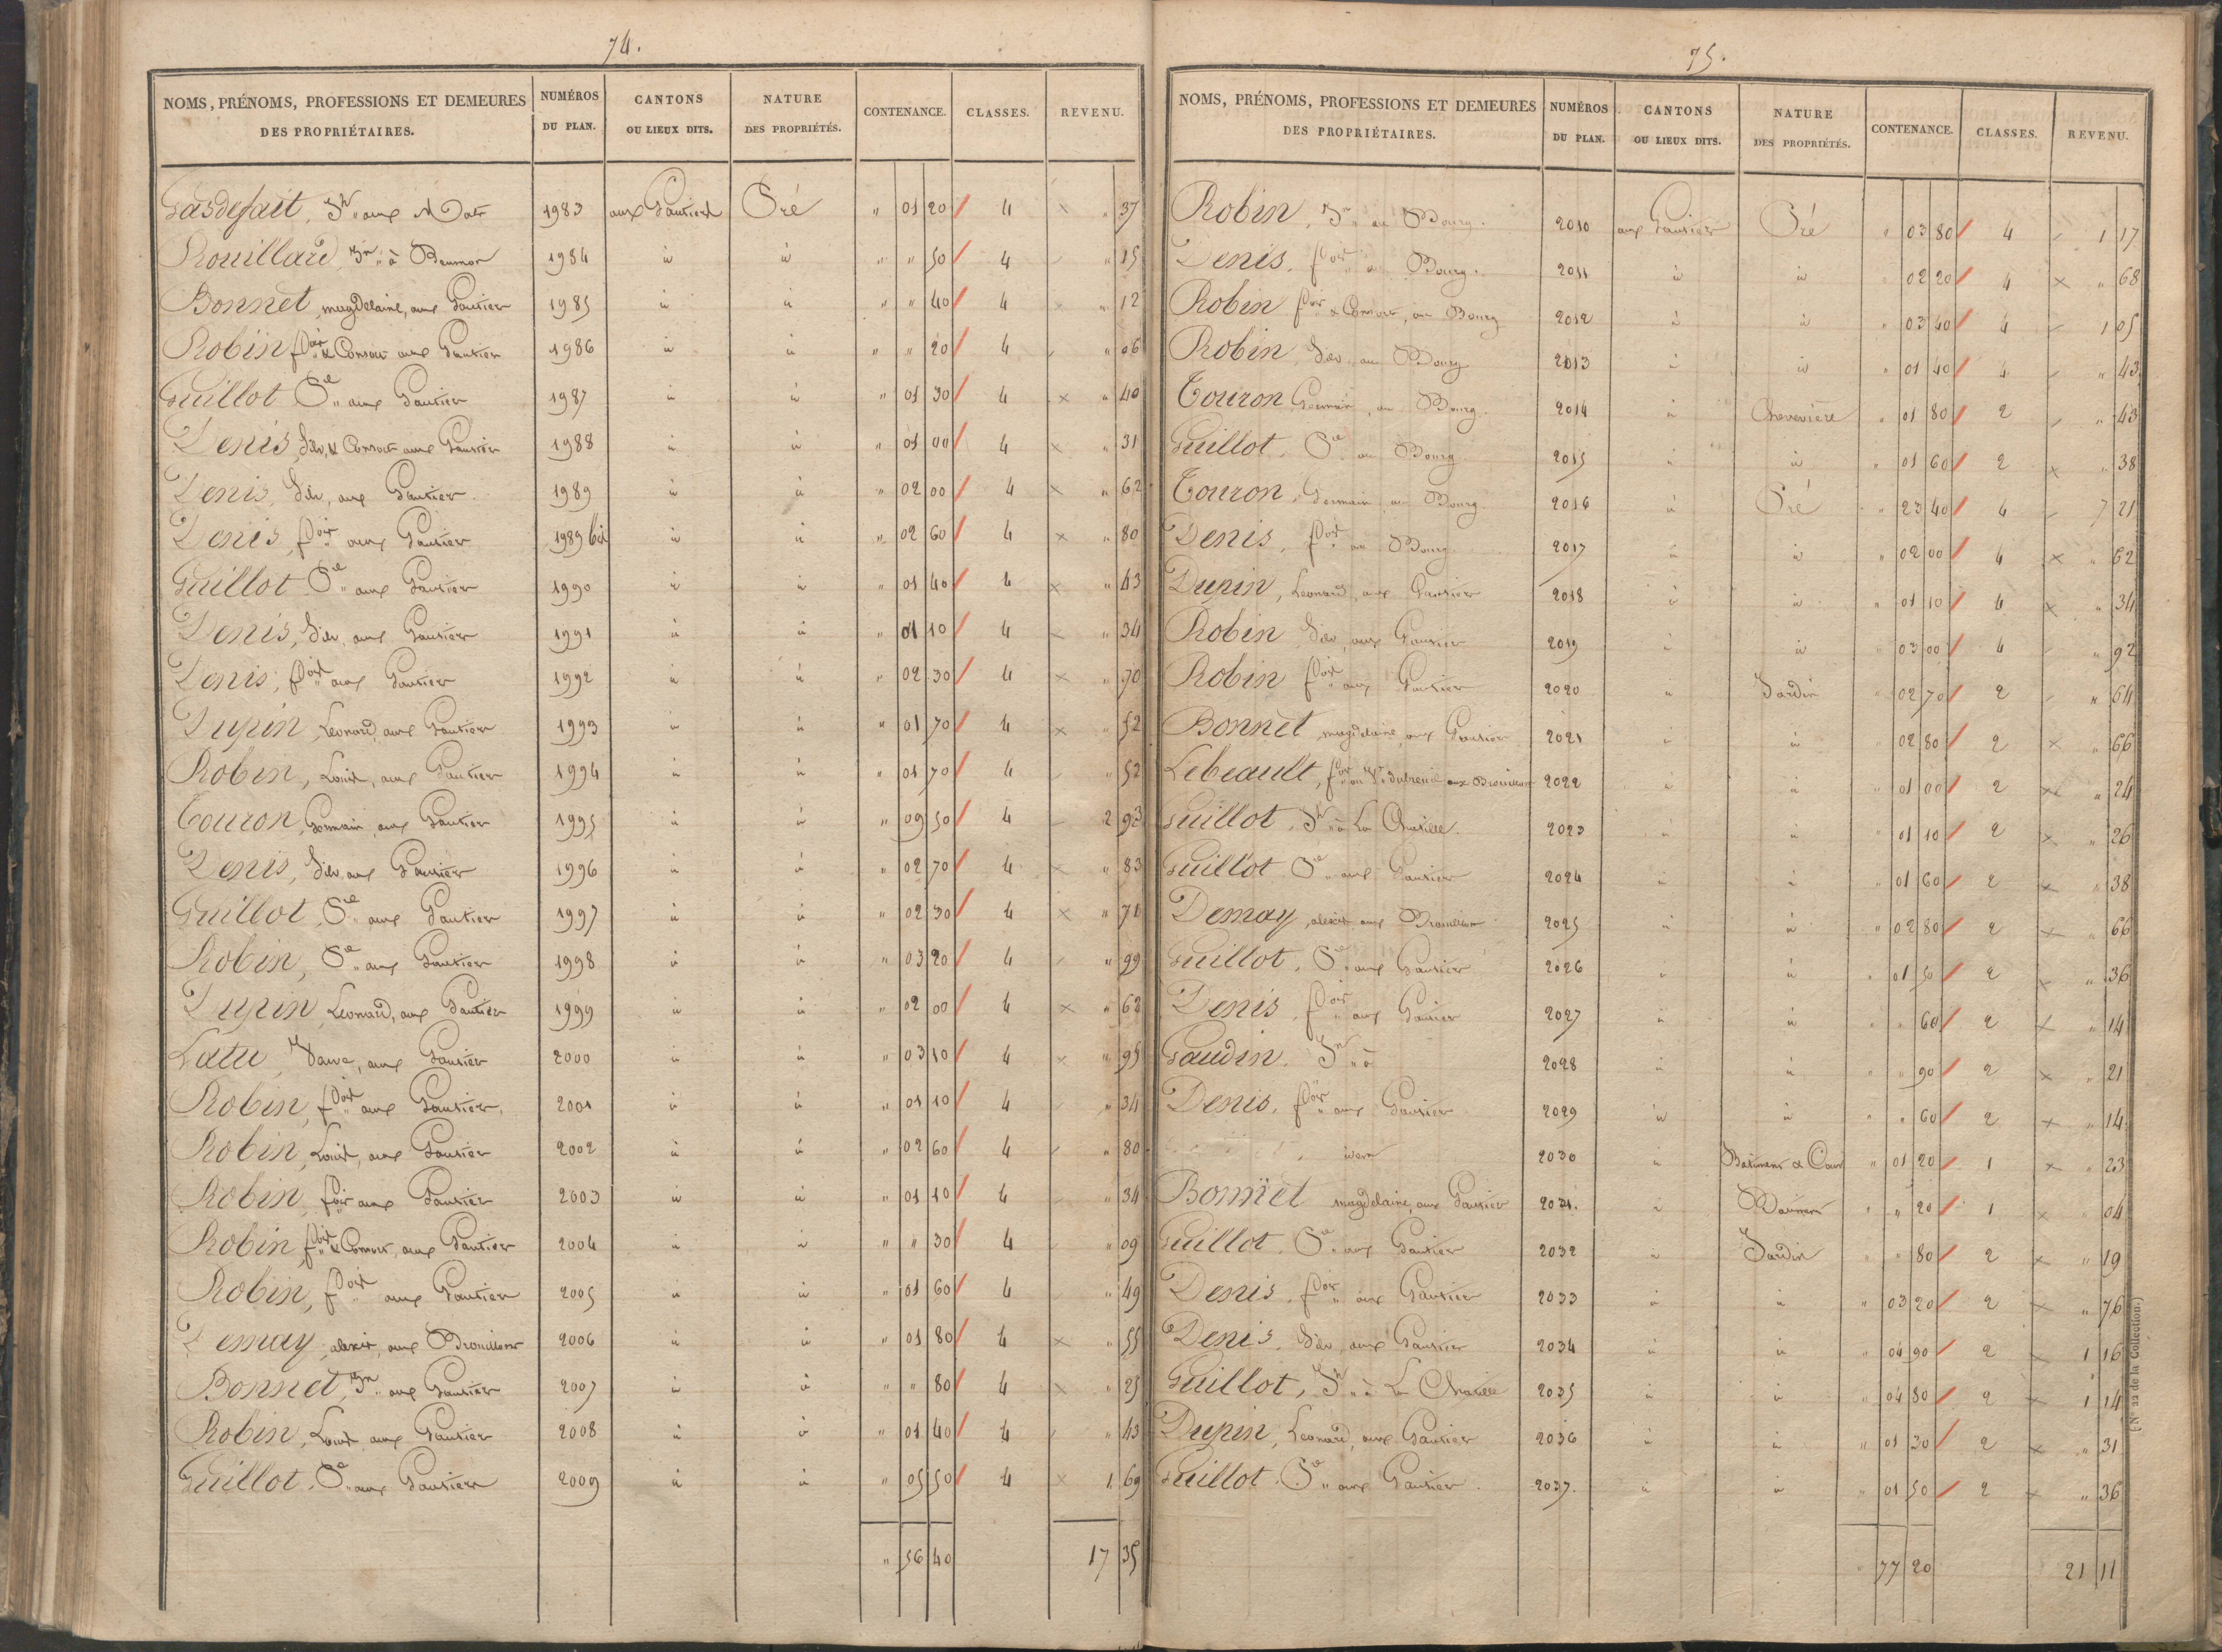 74.
NOMS, PRÉNOMS, PROFESSIONS ET DEMEURES DES PROPRIÉTAIRES. NUMÉROS DU PLAN. CANTONS OU LIEUX DITS. NATURE DES PROPRIÉTÉS. CONTENANCE. CLASSES. REVENU.
Gasdefait, aux 1983 aux Gautiers Pré " 01 20 4 " 37
Rouillard, Jn " à 1984 id id " " 50 4 " 15
Bonnet, magdelaine, aux Gautier 1985 id id " " 40 4 " 12
Robin fçois & Consort aux Gautier 1986 id id " " 20 4 " 06
Guillot Pre " aux Gautier 1987 id id " 01 30 4 " 40
Denis, Silv, & Consort aux Gautier 1988 id id " 01 00 4 " 31
Denis, Silv, aux Gautier 1989 id id " 02 00 4 " 62
Denis, fçois aux Gautier 1989 bis id id " 02 60 4 " 80
Guillot Pre " aux Gautier 1990 id id " 01 40 4 " 43
Denis, Silv, aux Gautier 1991 id id " 01 10 4 " 34
Denis, fçois aux Gautier 1992 id id " 02 30 4 " 70
Dupin, Leonard, aux Gautier 1993 id id " 01 70 4 " 52
Robin, Louis, aux Gautier 1994 id id " 01 70 4 " 52
Touron, Germain, aux Gautier 1995 id id " 09 50 4 2 93
Denis, Silv, aux Gautier 1996 id id " 02 70 4 " 83
Guillot, Pre " aux Gautier 1997 id id " 02 30 4 " 71
Robin, Pre " aux Gautier 1998 id id " 03 20 4 " 99
Dupin, Leonard, aux Gautier 1999 id id " 02 00 4 " 62
Latu, aux Gautier 2000 id id " 03 10 4 " 95
Robin, fçois aux Gautier 2001 id id " 01 10 4 " 34
Robin, Louis, aux Gautier 2002 id id " 02 60 4 " 80
Robin, fçois aux Gautier 2003 id id " 01 10 4 " 34
Robin, fçois & Consort, aux Gautier 2004 id id " " 30 4 " 09
Robin, fçois aux Gautier 2005 id id " 01 60 4 " 49
Demay, alexis, aux Brouillons 2006 id id " 01 80 4 " 55
Bonnet, Jn " aux Gautier 2007 id id " " 80 4 " 25
Robin, Louis aux Gautier 2008 id id " 01 40 4 " 43
Guillot, Pre " aux Gautier 2009 id id " 05 50 4 1 69
" 56 40 17 35
75.
NOMS, PRÉNOMS, PROFESSIONS ET DEMEURES DES PROPRIÉTAIRES. NUMÉROS DU PLAN. CANTONS OU LIEUX DITS. NATURE DES PROPRIÉTÉS. CONTENANCE. CLASSES. REVENU.
Robin, Jn " au Bourg. 2010 aux Gautier Pré " 03 80 4 1 17
Denis, fçois au Bourg. 2011 id id 02 20 4 " 68
Robin fçois & Consort, au Bourg 2012 id id " 03 40 4 1 05
Robin, Silv, au Bourg 2013 id id " 01 40 4 " 43
Touron Germain, au Bourg. 2014 id Chenevière " 01 80 2 " 43
Guillot, Pre au Bourg 2015 id id " 01 60 2 " 38
Touron, Germain, au Bourg. 2016 id Pré " 23 40 4 7 21
Denis, fçois au Bourg. 2017 id id " 02 00 4 " 62
Dupin, Leonard, aux Gautier 2018 id id " 01 10 4 " 34
Robin Silv, aux Gautier 2019 id id " 03 00 4 " 92
Robin fçois aux Gautier 2020 id Jardin " 02 70 2 " 64
Bonnet, magdelaine, aux Gautier 2021 id id 02 80 2 " 66
Lebeault, fçois aux Brouillons 2022 id id " 01 00 2 " 24
Guillot, à La 2023 id id 01 10 2 " 26
Guillot Pre " aux Gautier 2024 id id " 01 60 2 " 38
Demay, alexis aux Brouillons 2025 id id " 02 80 2 " 66
Guillot, Pre " aux Gautier 2026 id id " 01 50 2 " 36
Denis, fçois aux Gautier 2027 id id " " 60 2 " 14
Gaudin, Jn " à 2028 id id " " 90 2 " 21
Denis, fçois aux Gautier 2029 id id " " 60 2 " 14
idem 2030 id Batiment & Cour " 01 20 1 " 23
Bonnet magdelaine, aux Gautier 2031. id Batiment " " 20 1 " 04
Guillot, Pre " aux Gautier 2032 id Jardin " " 80 2 " 19
Denis, fçois " aux Gautier 2033 id id " 03 20 2 " 76
Denis, Silv, aux Gautier 2034 id id " 04 90 2 1 16
Guillot, à La 2035 id id " 04 80 2 1 14
Dupin, Leonard, aux Gautier 2036 id id " 01 30 2 " 31
Guillot, Pre " aux Gautier. 2037. id id " 01 50 2 " 36
" 77 20 21 11
(N° 22 de la Collection.)